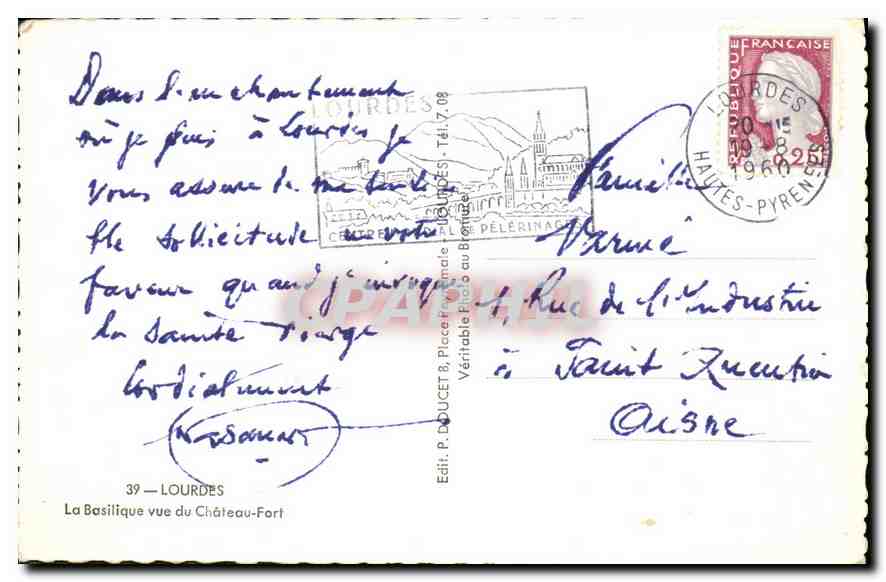 Dans l'enchantement
où je suis à Lourdes je
vous assure de ma
sollicitude votre
faveur quand j'invoque
la Sainte Vierge
Cordialement
39 — LOURDES
La Basilique vue du Château-Fort
Edit. P. DOUCET 8, Place Peyramale - LOURDES - Tél. 7.08
Véritable Photo au Bromure
LOURDES
CENTRE DE PÈLERINAGE
RÉPUBLIQUE FRANÇAISE
0,25
LOURDES
19-8
1960
HAUTES-PYRENEES
Famille
Varmé
1, Rue de l'Industrie
à Saint Quentin
Aisne
CPARAMA